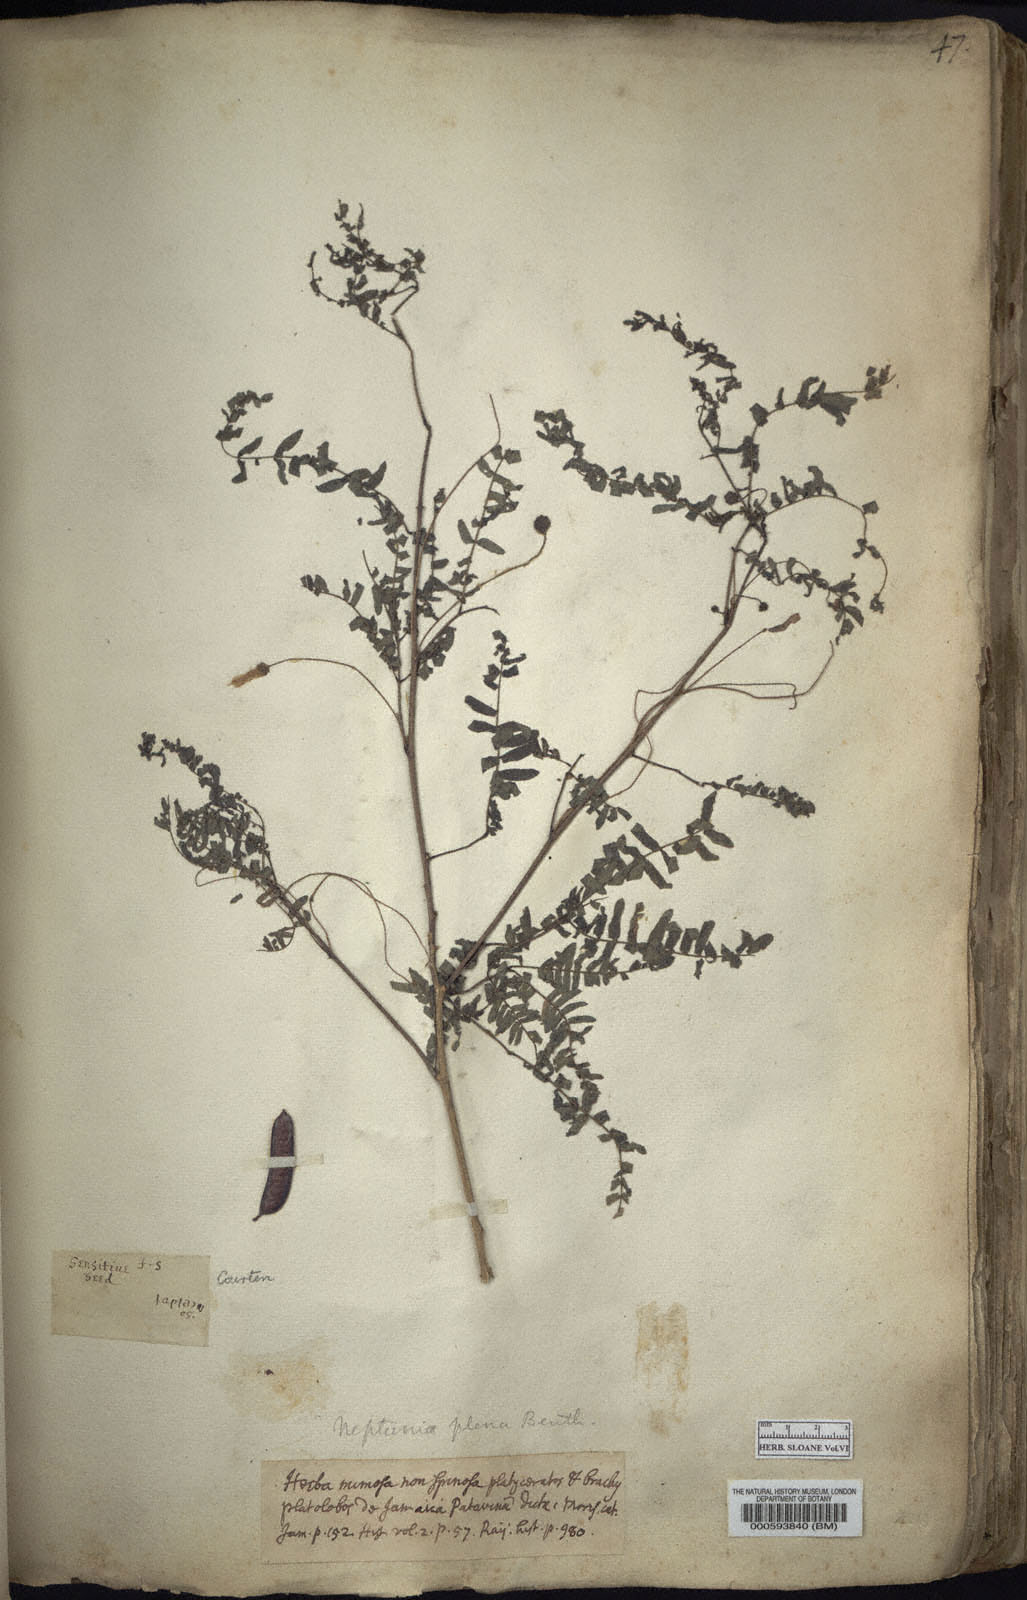 47.
Sensitive
seed
Courten
Neptunia plena Benth.
Herba mimosa non spinosa platyceratos & brachy
platolobos de Jamaica Patavina dicta: Moris.
Jam. p. 152. Hist vol. 2. p. 57. Raij. hist. p. 980.
mm 1 2 3
HERB. SLOANE Vol.VI
THE NATURAL HISTORY MUSEUM, LONDON
DEPARTMENT OF BOTANY
000593840 (BM)